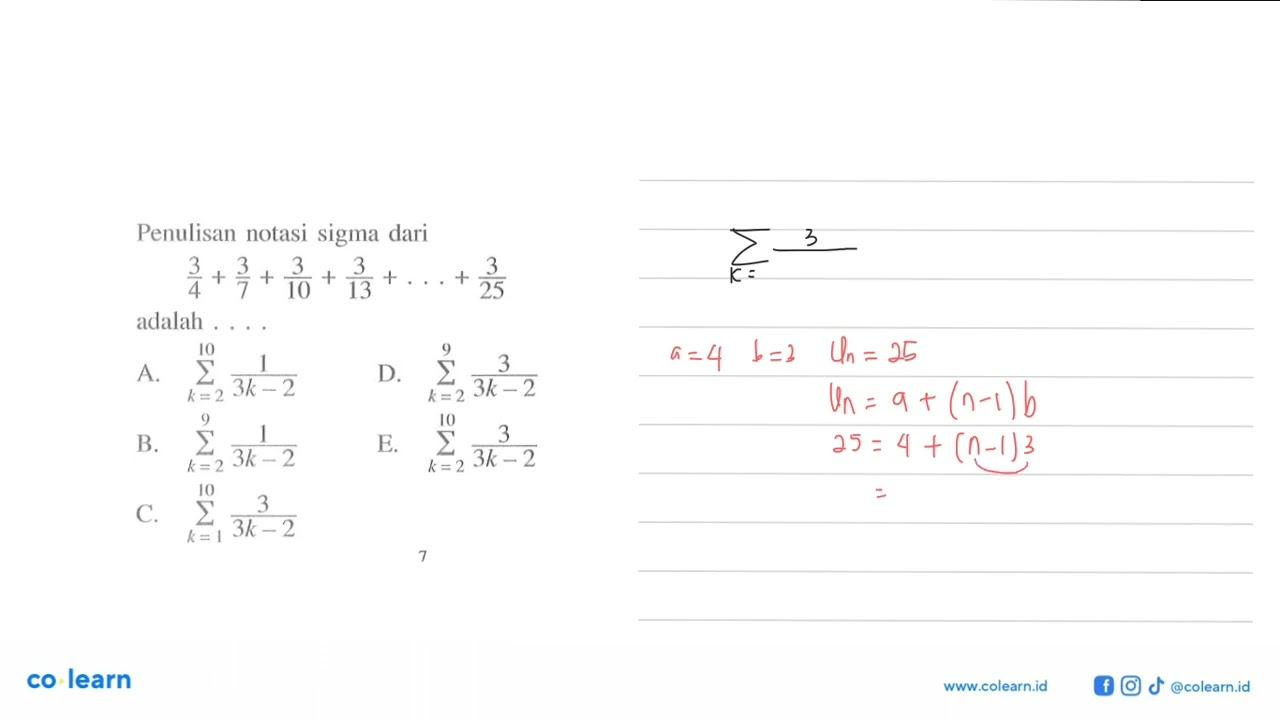 Penulisan notasi sigma dari
3/4 + 3/7 + 3/10 + 3/13 + . . . + 3/25
adalah . . . .
A. 10 Σ k = 2 1/3k – 2
D. 9 Σ k = 2 3/3k – 2
B. 9 Σ k = 2 1/3k – 2
E. 10 Σ k = 2 3/3k – 2
C. 10 Σ k = 1 3/3k – 2
7
Σ k = 3
a = 4 b = 3 Un = 25
Un = a + (n – 1) b
25 = 4 + (n – 1) 3
=
co·learn
www.colearn.id
@colearn.id